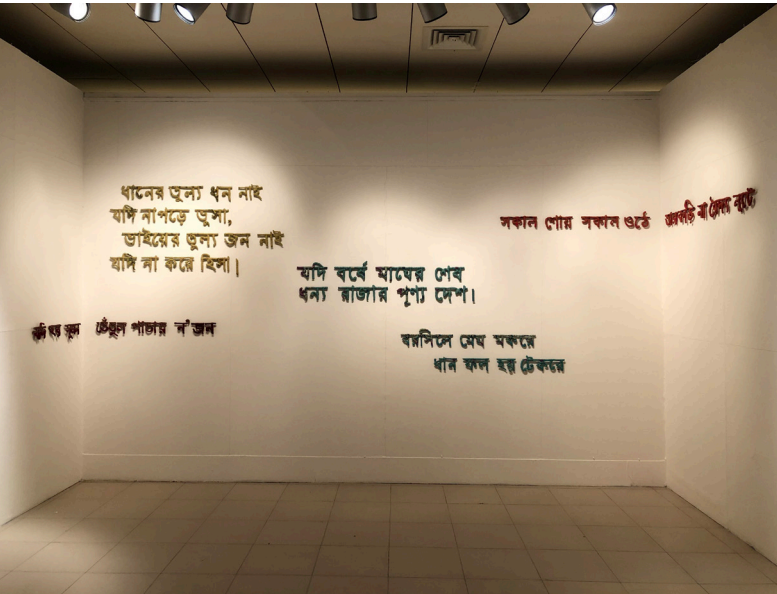 ধানের তুল্য ধন নাই
যদি নাপড়ে ভুসা,
ভাইয়ের তুল্য জন নাই
যদি না করে হিসা।
যদি হয় সুজন তেঁতুল পাতায় ন'জন
যদি বর্ষে মাঘের শেষ
ধন্য রাজার পূণ্য দেশ।
বরসিলে মেঘ মকরে
ধান ফল হয় টেকরে
সকাল শোয় সকাল ওঠে